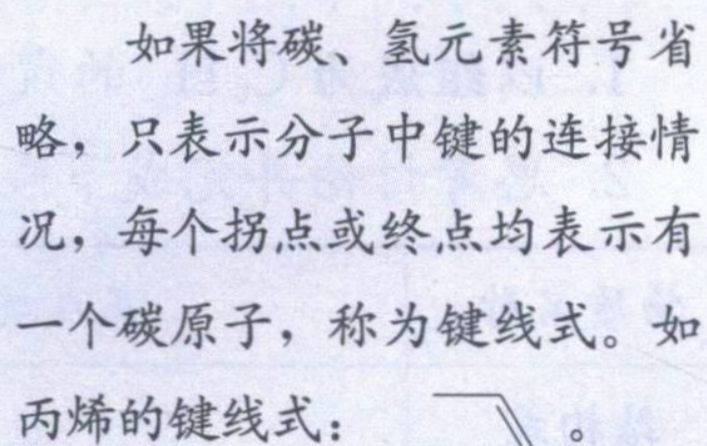 如果将碳、氢元素符号省
略，只表示分子中键的连接情
况，每个拐点或终点均表示有
一个碳原子，称为键线式。如
丙烯的键线式： 。